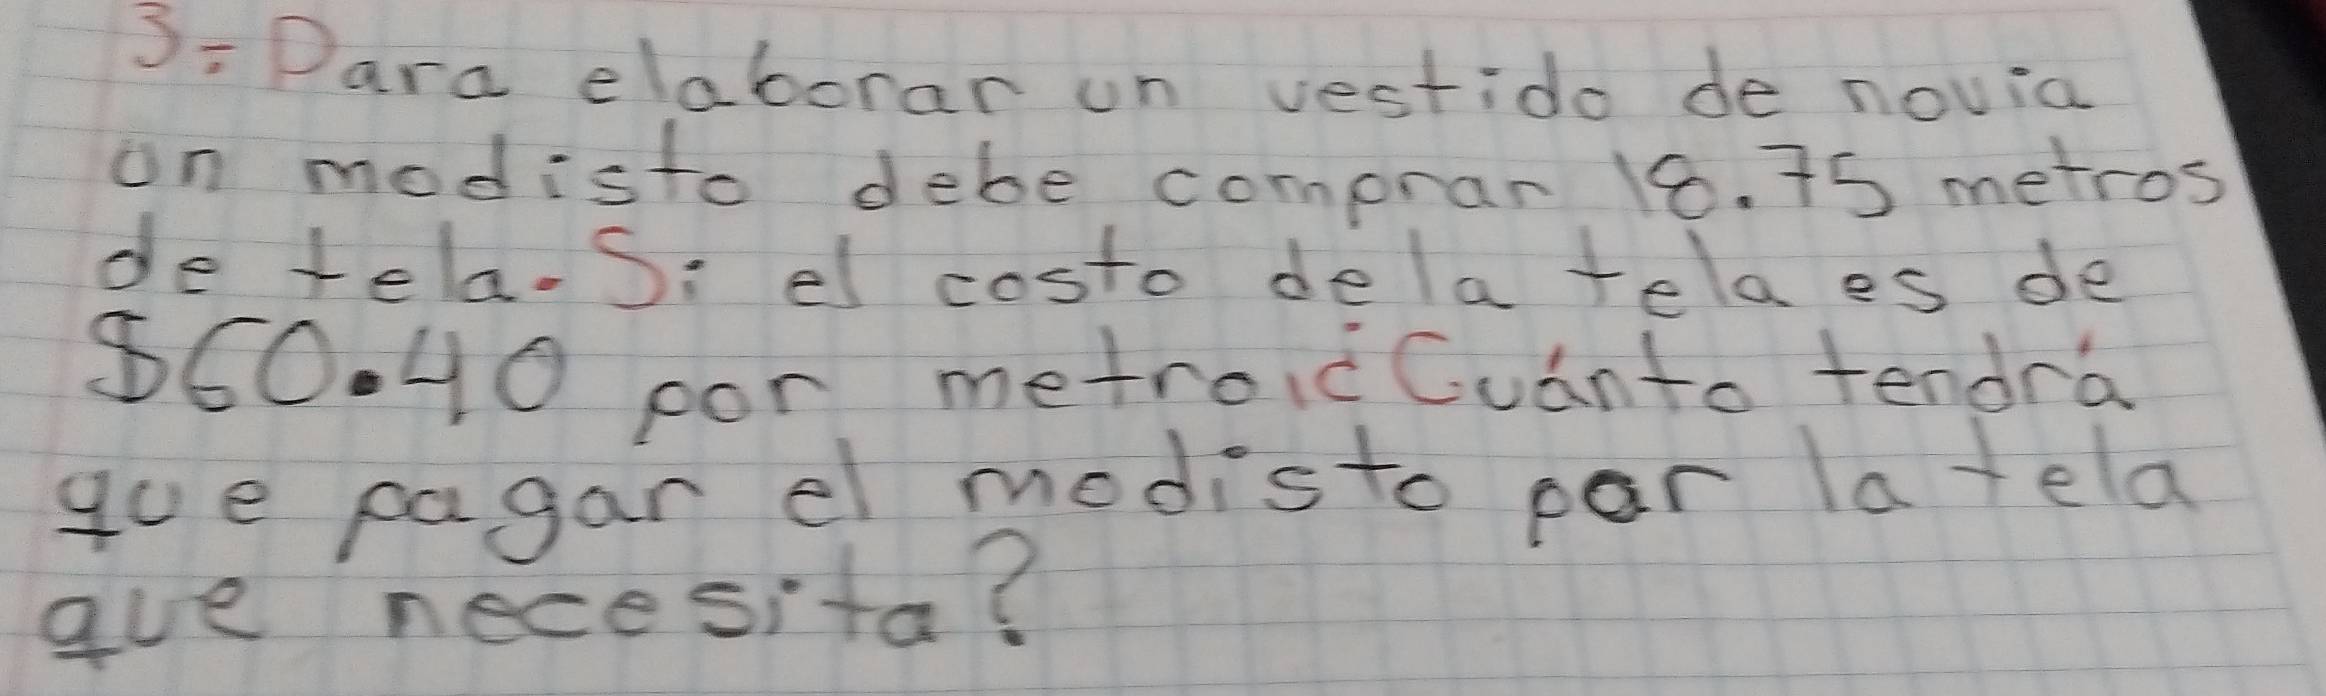 3.- Para elaborar un vestido de novia
un modisto debe comprar 18.75 metros
de tela. Si el costo de la tela es de
$60.40 por metro, ¿Cuánto tendrá
que pagar el modisto por la tela
que necesita?